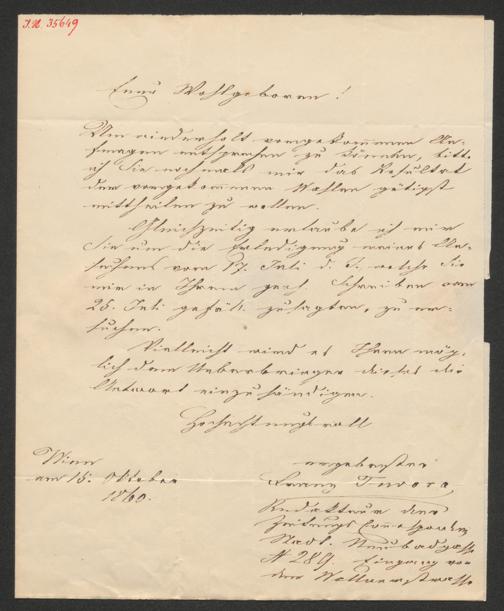 I.N. 35649
Euer Wohlgeboren!
Um wiederholt vorgekommenen An-
fragen entsprechen zu können, bitte
ich Sie nochmals mir das Resultat
der vorgekommenen Wahlen gütigst
mittheilen zu wollen.
Gleichzeitig erlaube ich mir
Sie um die Erledigung meines An-
suchens vom 17. Juli d. J. welche Sie
mir in Ihrem gesch. Schreiben vom
25. Juli gefäll. zusagten, zu er-
suchen.
Vielleicht wird es Ihnen mög-
lich dem Ueberbringer dieses die
Antwort einzuhändigen.
Hochachtungsvoll
Wien
am 15. Oktober
1860.
ergebenster
Franz
Redakteur der
Zeitungs Correspondenz
Stadt. Neubadgasse
N 289. Eingang von
der Wallnerstrasse